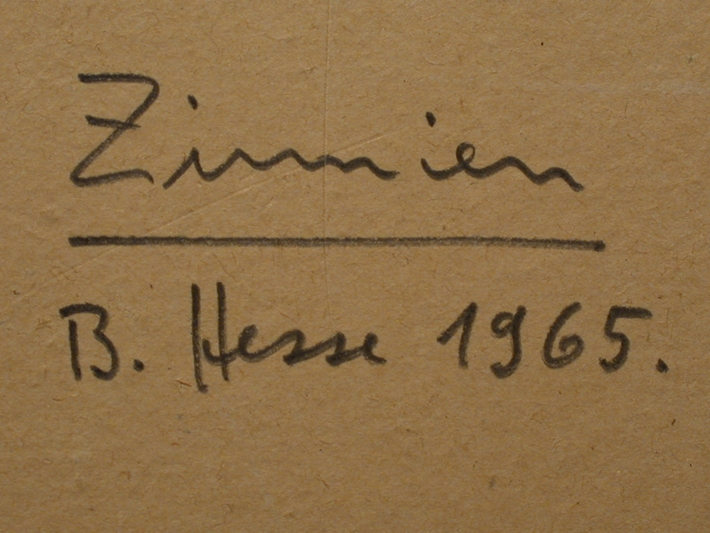 Zinnien
B. Hesse 1965.